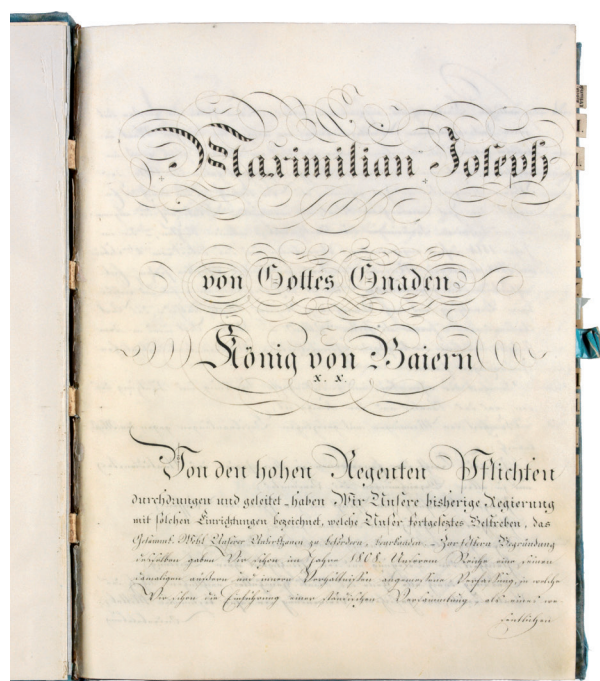 Maximilian Joseph
von Gottes Gnaden
König von Baiern
x. x.
Von den hohen Regenten Pflichten
durchdrungen und geleitet _ haben Wir Unsere bisherige Regierung
mit solchen Einrichtungen bezeichnet, welche Unser fortgesetztes Bestreben, das
Gesammt-Wohl Unserer Unterthanen zu befördern, beurkunden. _ Zur festern Begründung
desselben gaben Wir schon im Jahre 1808. Unserem Reiche eine seinen
damaligen äussern und innern Verhältnissen angemessene Verfassung, in welche
Wir schon die Einführung einer ständischen Versammlung, als eines we-
sentlichen